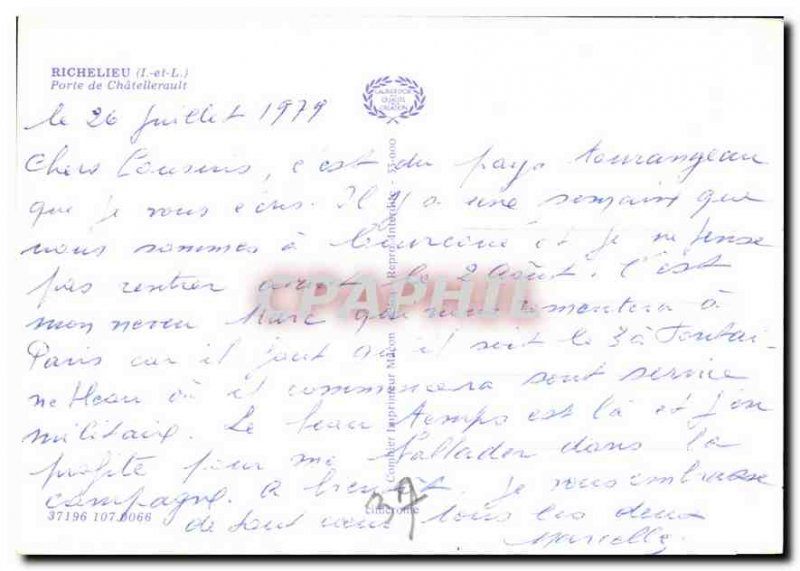 RICHELIEU (I.-et-L.)
Porte de Châtellerault
LAURIER D'OR
QUALITÉ
CRÉATION
le 26 Juillet 1979
Chers Cousins, c'est du pays tourangeau
que je vous écris. Il y a une semaine que
nous sommes à et je ne pense
pas rentrer avant le 2 Août. C'est
mon neveu Marc qui nous remontera à
Paris car il faut qu'il soit le 3 à Fontai-
nebleau où il commencera sont service
militaire. Le beau temps est là et j'en
profite pour me ballader dans la
campagne. A bientôt. Je vous embrasse
de tout cœur tous les deux
Marcelle
37196 107.0066
37
Combier Imprimeur Mâcon
Repr. Interdite - 55-000
CPAPHIL